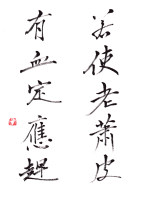 若使老蕭皮
有血定應趕